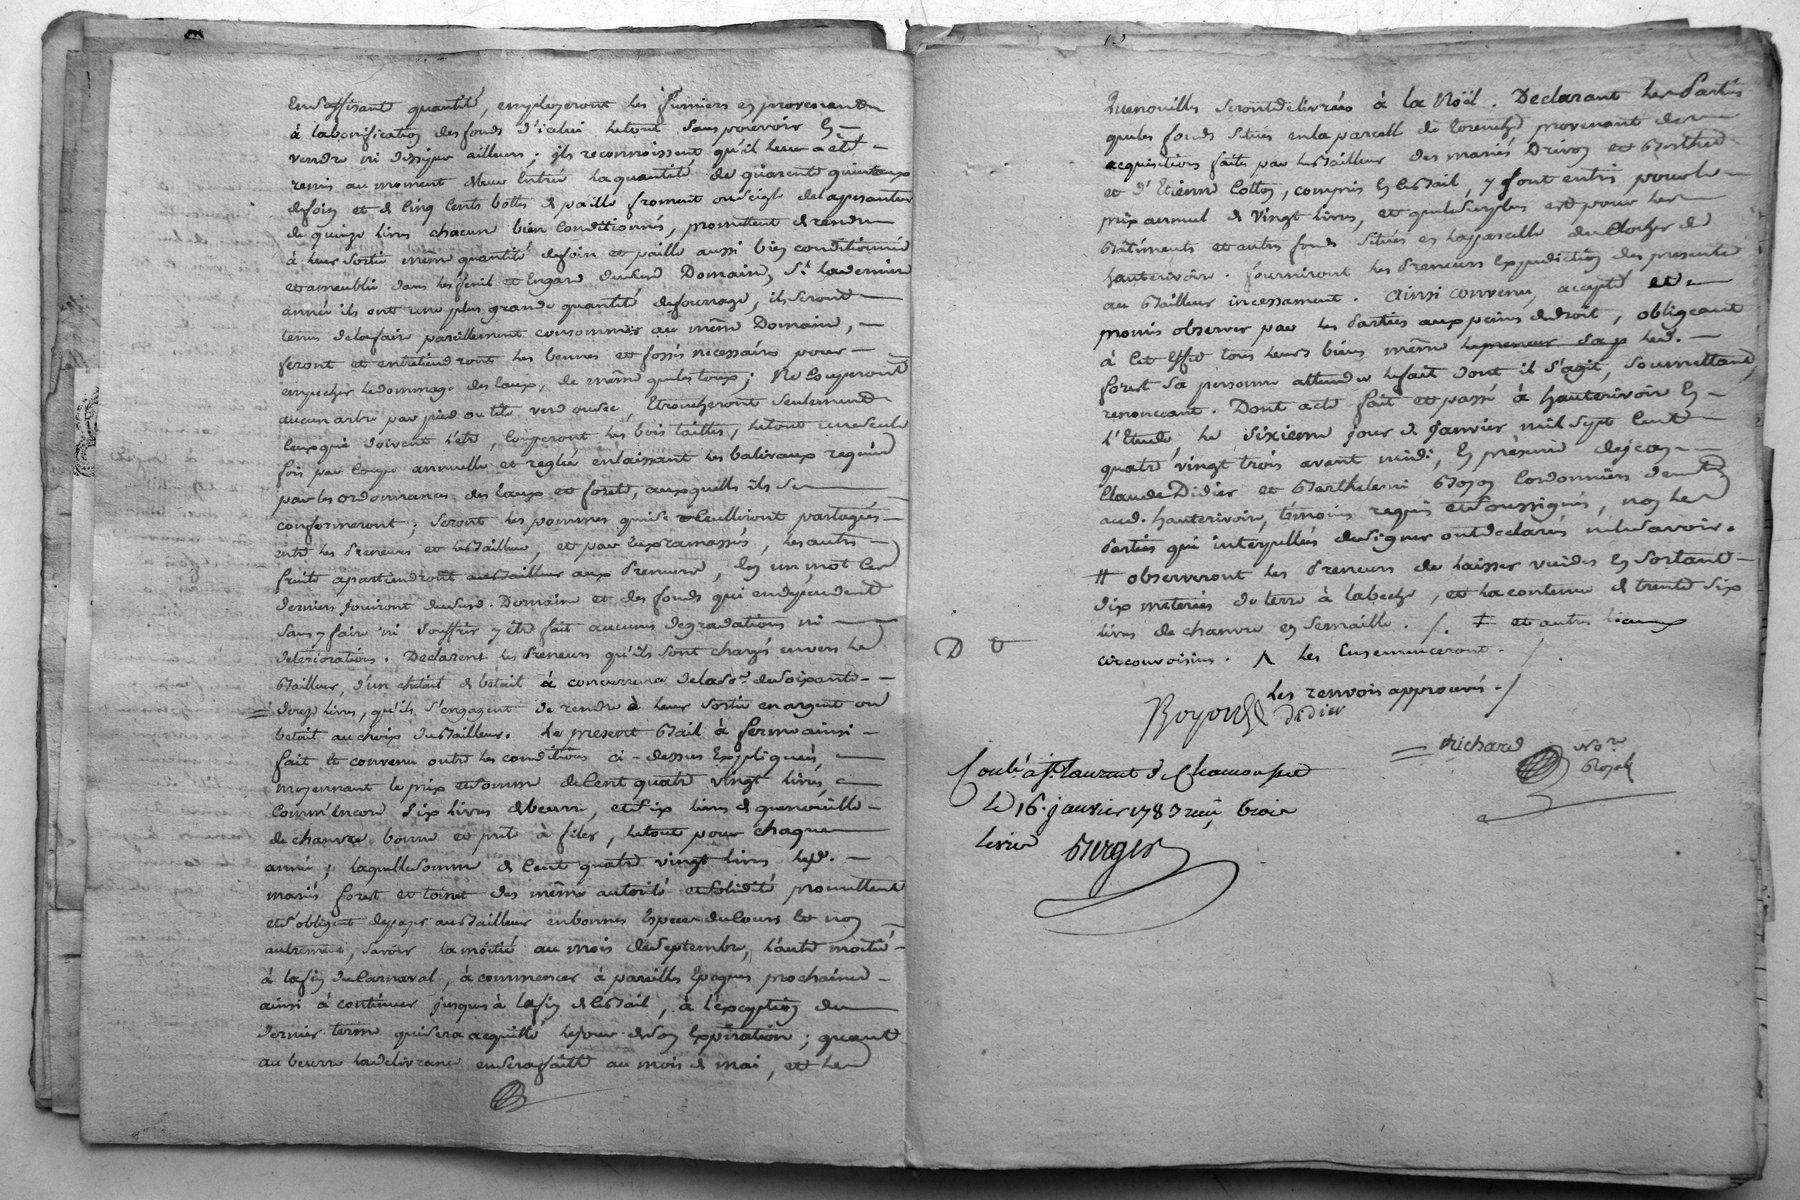 En suffisante quantité, employeront les fumiers en provenants
à la bonification des fonds d'icelui le tout sans pouvoir En
vendre ni dissiper ailleurs ; ils reconnoissent qu'il leur a été
remis au moment de leur Entrée la quantité de quarante quintaux
de foin et de Cinq Cents bottes de paille froment ou seigle de la pesanteur
de quinze livres chacune bien Conditionnés, promettent de rendre
à leur sortie même quantité de foin et paille aussi bien conditionnée
et ameublie dans les fenil et Engard dudit Domaine, Si la derniere
année ils ont une plus grande quantité de fourrage, ils seront
tenus de le faire pareillement consommer au même Domaine,
feront et entretiendront les bennes et fossés necessaires pour
empecher le dommage des Eaux, de même que les ; Ne Couperont
aucun arbre par pied ou tête verd ou sec, Etroncheront seulement
Ceux qui doivent l'être, Couperont les bois taillés, le tout une seule
fois par Coupe annuelle et reglée en laissant les balivaux requis
par les ordonnances des Eaux et forêts, auxquelles ils se
conformeront ; seront les pommes qui se Cuelliront partagées
entre les Preneurs et le Bailleur, et par Eux ramassés, les autres
fruits apartiendront au Bailleur aux Preneurs, En un mot Ces
derniers Jouiront dudit Domaine et des fonds qui en dépendent
sans y faire ni souffrir y être fait aucunes degradations ni
deteriorations. Declarent les Preneurs qu'ils sont chargés envers le
Bailleur, d'un cheptel de betail à concurrence de la so.e de soixante
douze livres, qu'ils s'engagent de rendre à leur sortie en argent ou
betail au choix du Bailleur. Le present Bail à ferme ainsi
fait et convenu outre les conditions ci-dessus Expliquées,
moyennant le prix et somme de Cent quatre vingt livres,
Comm'encore Six livres de beurre, et Six livres de quenouille
de chanvre bonne et prete à filer, le tout pour chaque
année ; laquelle somme de Cent quatre vingt livres les d.
mariés forest et toinet des même autorité et solidité promettent
et s'obligent de payer au Bailleur en bonnes Especes du Cours et non
autrement, savoir la moitié au mois de septembre, l'autre moitié
à la fin du Carnaval, à commencer à pareilles Epoques prochaines
ainsi à continuer jusques à la fin de Ce Bail, à l'exception du
dernier terme qui sera acquitté le jour de son Expiration ; quant
au beurre la delivrance en sera faitte au mois de mai, et les
Quenouilles seront delivrées à la Noël. Declarant les Parties
que les fonds situés en la parcelle de provenant des
acquisitions faites par le Bailleur des mariés Drivon et Berthet
et d'Etienne Cotton, compris En Ce Bail, y sont entrés pour le
prix annuel de Vingt livres, et que le surplus est pour les
Bâtiments et autres fonds situés en la parcelle du Clocher de
hauterivoire. fourniront les Preneurs Expedition des presentes
au Bailleur incessament. Ainsi convenu, accepté et
promis observer par les Parties aux peines de droit, obligeant
à Cet Effet tous leurs biens même le preneur sa p led.
forest sa personne attendu le fait dont il s'agit, soumettant,
renonceant. Dont acte fait et passé à hauterivoire En
l'Etude, le sixieme jour de Janvier mil sept Cent
quatre vingt trois avant midi, En présence de
Claude Didier et Barthelemi Boyon Cordonniers demt
aud. hauterivoire, témoins requis et soussignés, non les
Parties qui interpellées de signer ont declarés ne le savoir.
# observeront les Preneurs de laisser vuides En sortant
dix meterées de terre à labeche, et la contenue de trente six
livres de chanvre en semaille. /. ‡ et autres lieux
circonvoisins. ^ les Ensemenceront. /.
D
les renvois approuvés. /
Boyon Didier
Richard No.re
Royal
Conlé à St Laurent de Chamousset
Le 16 janvier 1783 reçu trois
livres Berger